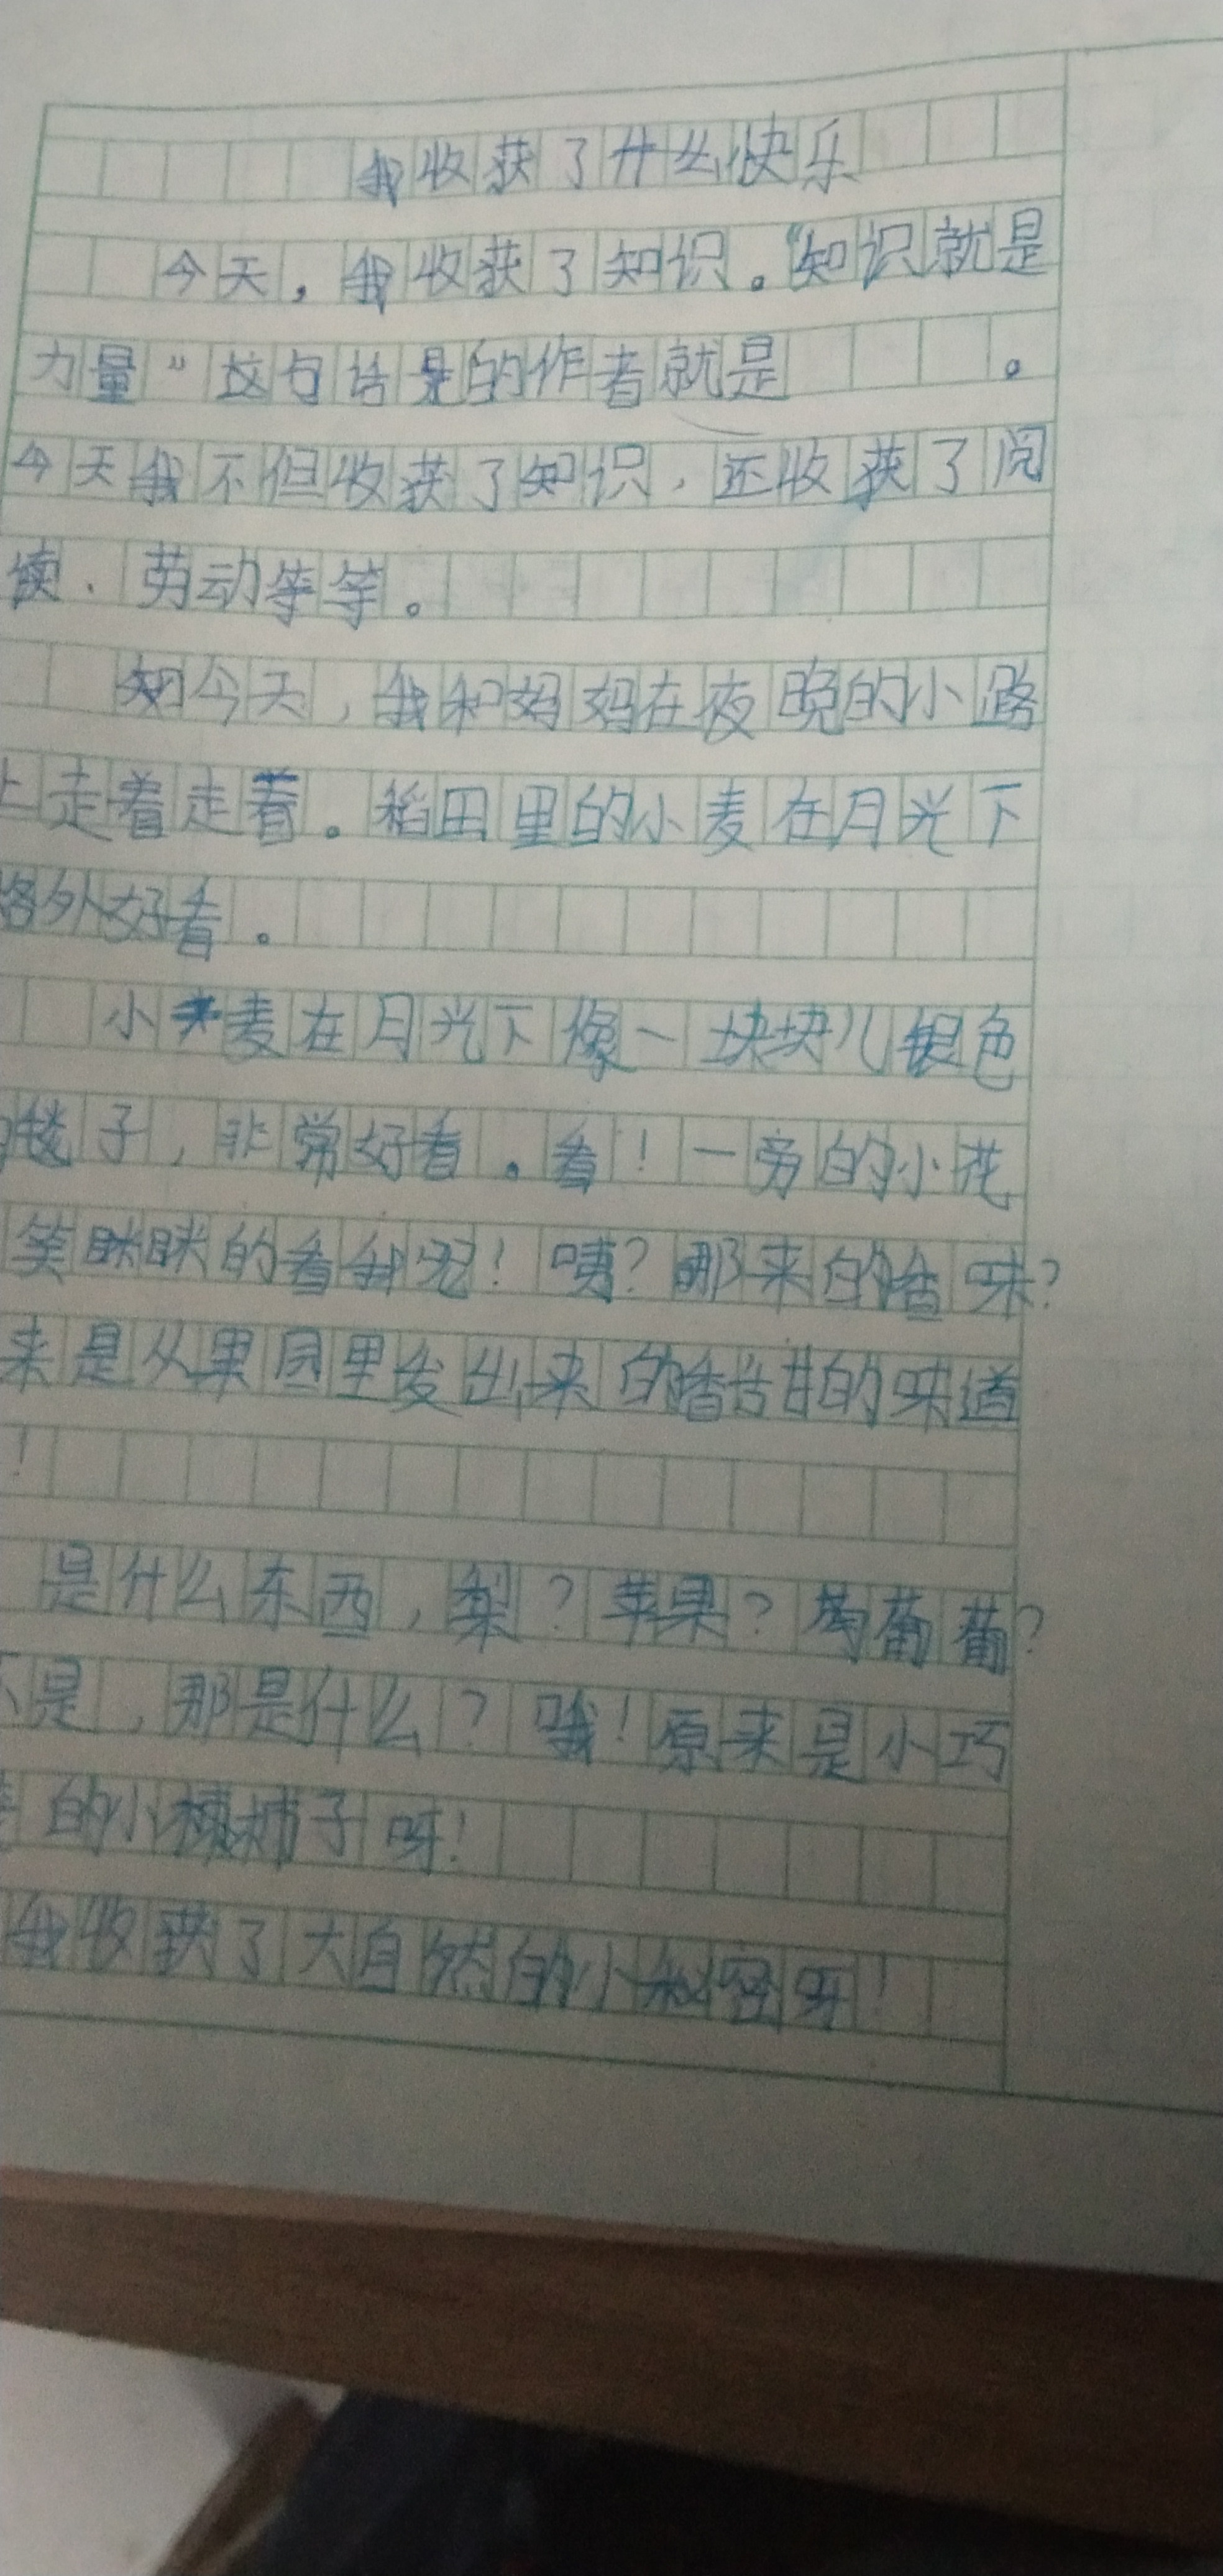 我收获了什么快乐
今天，我收获了知识。“知识就是
力量”这句话是的作者就是。
今天我不但收获了知识，还收获了阅
读、劳动等等。
如今天，我和妈妈在夜晚的小路
上走着走着。稻田里的小麦在月光下
格外好看。
小麦在月光下像一块块儿银色
的毯子，非常好看。看！一旁的小花
笑眯眯的看我呢！咦？那来的香味？
来是从果园里发出来的香甘的味道
！
是什么东西，梨？苹果？葡萄？
不是，那是什么？哦！原来是小巧
的小柿子呀！
我收获了大自然的小秘密呀！